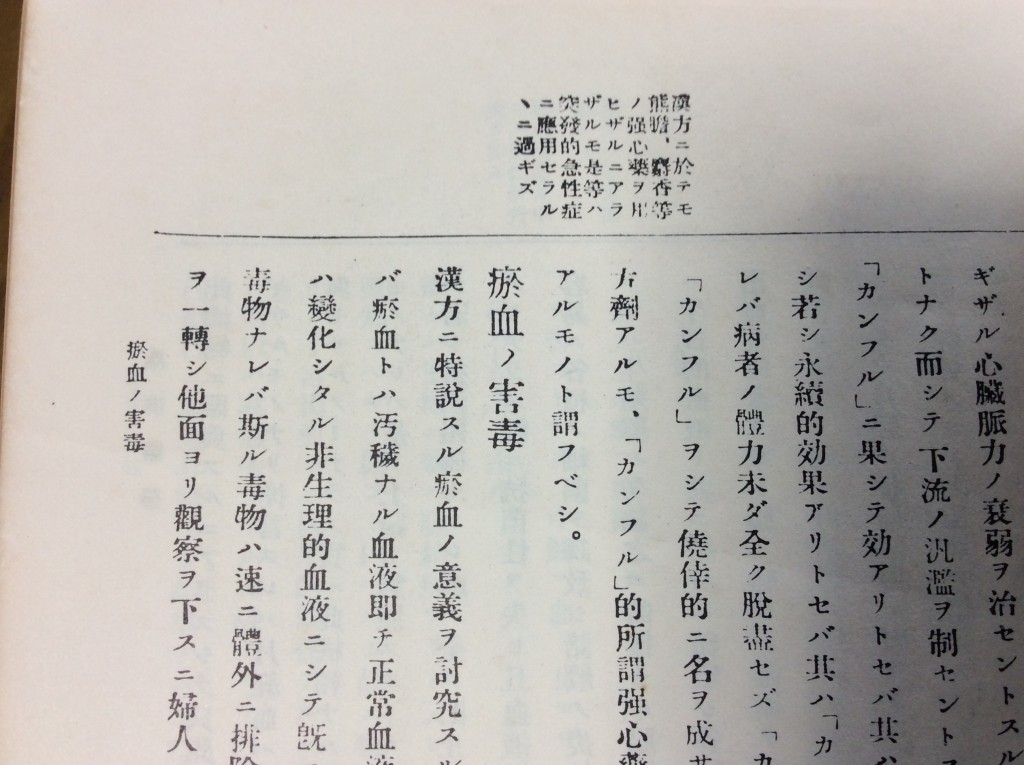 漢方ニ於テモ
熊膽、麝香等
ノ强心藥ヲ用
ヒザルニアラ
ザルモ是等ハ
突發的急性症
ニ應用セラル
ヽニ過ギズ
ギザル心臟脈力ノ衰弱ヲ治セントスル
トナク而シテ下流ノ汎濫ヲ制セントス
「カンフル」ニ果シテ効アリトセバ其ハ
シ若シ永續的効果アリトセバ其ハ「カ
レバ病者ノ體力未ダ全ク脫盡セズ「カ
「カンフル」ヲシテ僥倖的ニ名ヲ成サ
方劑アルモ、「カンフル」的所謂强心藥
アルモノト謂フベシ。
瘀血ノ害毒
漢方ニ特說スル瘀血ノ意義ヲ討究スル
バ瘀血トハ汚穢ナル血液卽チ正常血液
ハ變化シタル非生理的血液ニシテ旣
毒物ナレバ斯ル毒物ハ速ニ體外ニ排除
ヲ一轉シ他面ヨリ觀察ヲ下スニ婦人
瘀血ノ害毒